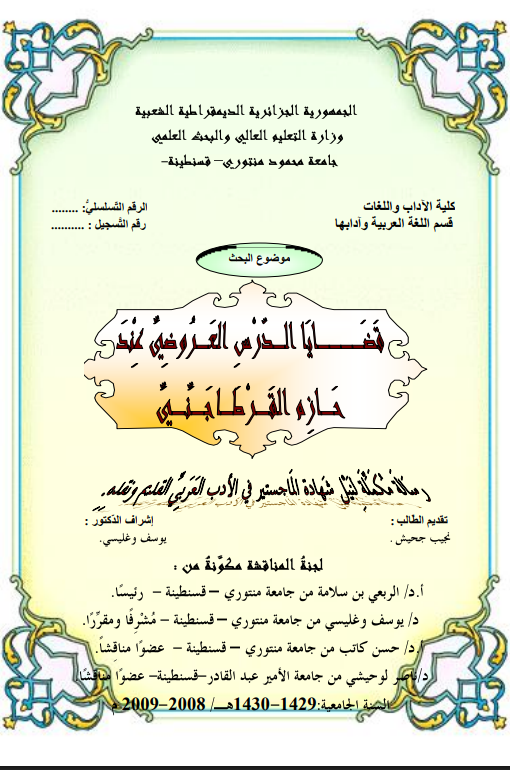 الجمهورية الجزائرية الديمقراطية الشعبية
وزارة التعليم العالي والبحث العلمي
جامعة محمود منتوري– قسنطينة-
كلية الآداب واللغات
الرقم التَّسلسليُّ: ........
قسم اللغة العربية وآدابها
رقم التَّسجيل : ..........
موضوع البحث
قَضَـــــايَا الـدَّرْسِ العَـرُوضِيِّ عِنْدَ
حَـازِم القَـرْطَـاجَنِّـيِّ
رسالةٌ مكمِّلةٌ لنَيْلِ شهادة الماجستير في الأدب العَرَبيِّ القديم ونقده.
تقديم الطالب :
إشراف الدّكتور :
نجيب جحيش.
يوسف وغليسي.
لجنةُ المناقشة مكوَّنةٌ من :
أ.د/ الربعي بن سلامة من جامعة منتوري – قسنطينة – رئيسًا.
د/ يوسف وغليسي من جامعة منتوري – قسنطينة – مُشْرِفًا ومقرِّرًا.
أ.د/ حسن كاتب من جامعة منتوري – قسنطينة – عضوًا مناقِشاً.
د/ناصر لوحيشي من جامعة الأمير عبد القادر–قسنطينة– عضوًا مناقشًا.
السنة الجامعية:1429–1430هـ/ 2008–2009 م